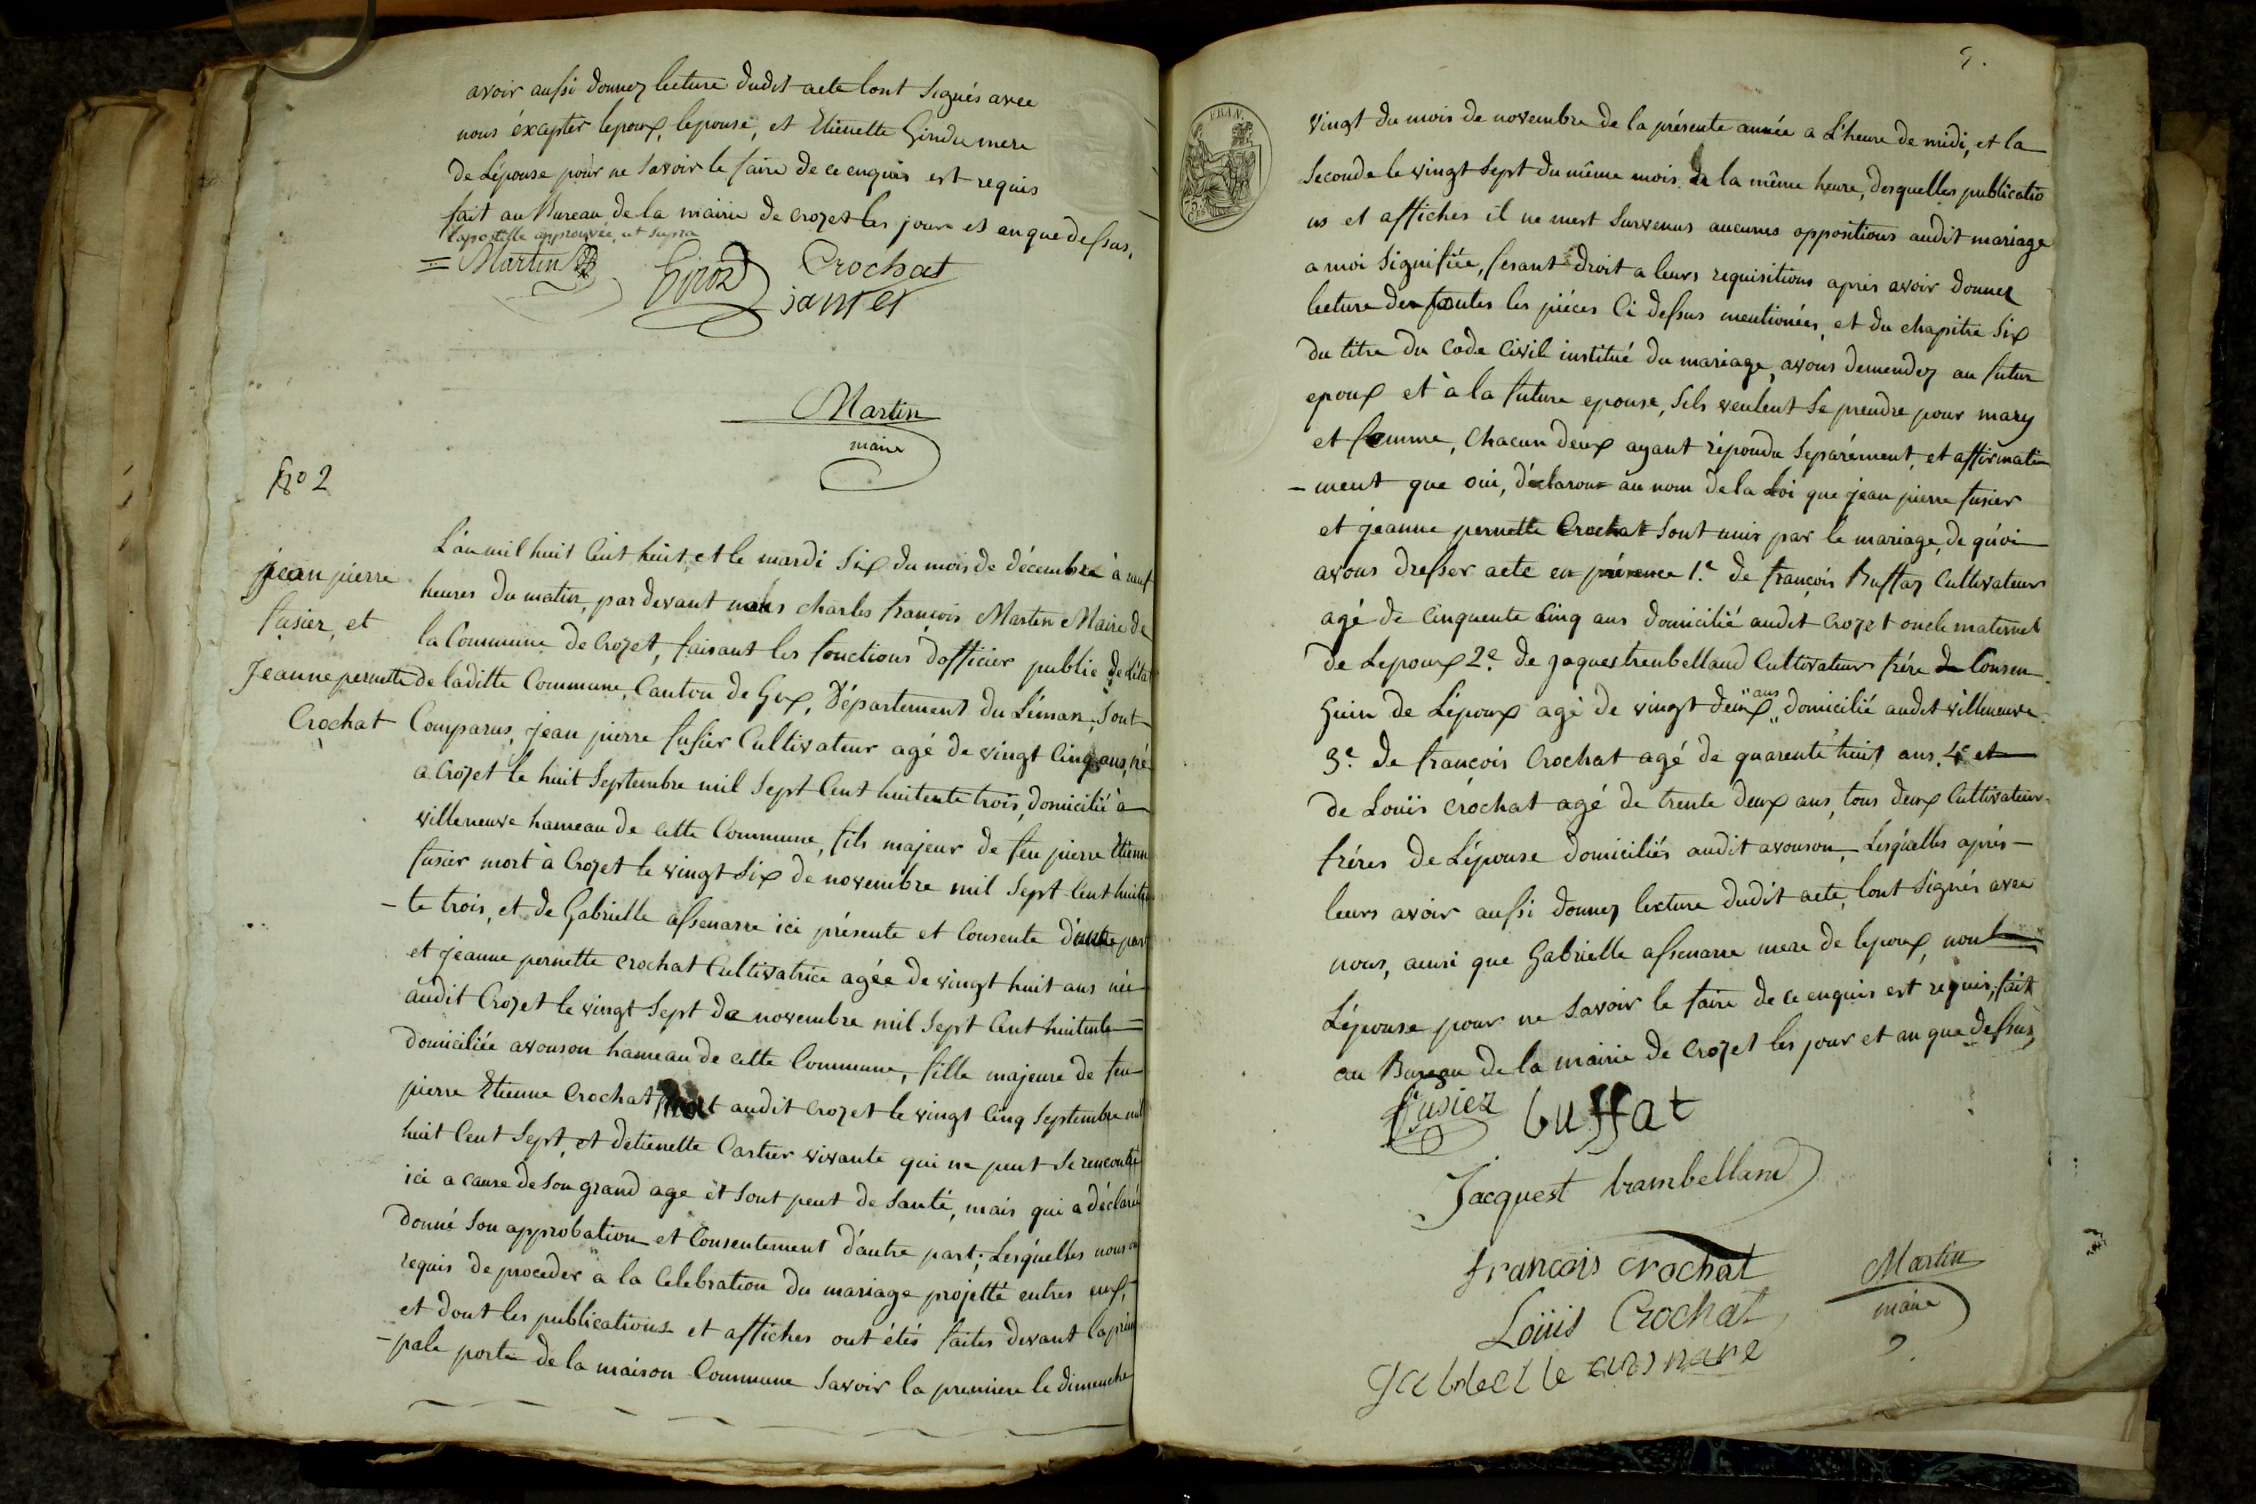 avoir aussi donnez lecture dudit acte lont signés avec
nous éxcepter lepoux, lepouse, et Etienette Gindu mere
de Lépouse pour ne savoir le faire de ce enquis est requis
fait au Bureau de la mairie de crozet les jour et an que dessus.
lapostille approuvée ut supra
= Martin Girod Crochat
janter
Martin
maire
No 2
jean pierre
fusier, et
Jeanne pernette
Crochat
L'an mil huit cent huit, et le mardi six du mois de décembre à neuf
heures du matin, par devant nous charles françois Martin Maire de
la Commune de Crozet, faisant les fonctions d'officier public de L'état
de laditte Commune, Canton de Gex, Département du Léman, Sont
Comparus, jean pierre fusier Cultivateur agé de vingt Cinq ans, né
a Crozet le huit Septembre mil Sept Cent huitente trois, domicilié à
villeneuve hameau de cette Commune, fils majeur de feu pierre Etienne
fusier mort à Crozet le vingt Six de novembre mil Sept Cent huiten
-te trois, et de Gabrielle assenarre ici présente et Consente d'autre part
et jeanne pernette crochat Cultivatrice agée de vingt huit ans née
audit Crozet le vingt Sept de novembre mil Sept Cent huitente =
domiciliée avouson hameau de cette Commune, fille majeure de feu
pierre Etienne Crochat mort audit Crozet le vingt Cinq Septembre mil
huit Cent Sept, et detienette Cartier vivante qui ne peut se rencontré
ici a cause de son grand age et sont peut de santé, mais qui a déclaré
donné son approbation et Consentement d'autre part; Lesquelles nous on
requis de proceder a la Celebration du mariage projetté entres eux,
et dont les publications et affiches ont étés faites devant la princi
-pale porte de la maison Commune savoir la premiere le dimenche
5.
FRAN
vingt du mois de novembre de la présente année a L'heure de midi, et la
Seconde le vingt Sept du même mois de la même heure, desquelles publicatio
ns et affiches il ne mest survenus aucunes oppositions audit mariage
a moi signifiée, fesant droit a leurs requisitions après avoir donnez
lecture des toutes les piéces Ci dessus mentionées, et du chapitre Six
du titre du Code Civil institué du mariage, avons demendez au futur
epoux et à la future epouse, sils veulent se prendre pour mary
et femme, Chacun deux ayant répondu séparément, et affirmative
-ment que oui, déclarons au nom de la Loi que jean pierre fusier
et jeanne pernette Crochat Sont unis par le mariage, de quoi
avons dresser acte en présence 1.e de françois Buffaz Cultivateur
agé de Cinquente Cinq ans domicilié audit Crozet oncle maternel
de Lepoux 2.e de jaques trenbelland Cultivateur frére de Consen
Guin de Lépoux agé de vingt deux ans domicilié audit villeneuve
3.e de françois Crochat agé de quarente huit ans. 4.e et
de Louïs Crochat agé de trente deux ans, tous deux Cultivateur
fréres de Lépouse domiciliés audit avouson, Lesquelles aprés
leurs avoir aussi donnez lecture dudit acte, lont signés avec
nous, ainsi que Gabrielle assenarre mere de lepoux, non
Lépouse pour ne savoir le faire de ce enquis est requis, fait
au Bureau de la mairie de Crozet les jour et an que dessus,
fusiez buffat
Jacquest trambelland
françois crochat
Martin
maire
Loüis Crochat